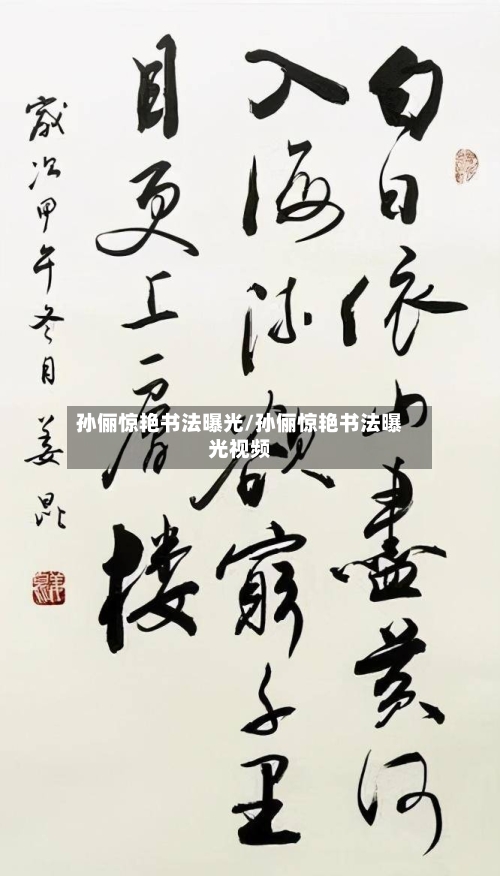 白日依山盡黄河
入海流欲窮千里
目更上一層楼
歲次甲午冬月姜昆
孙俪惊艳书法曝光/孙俪惊艳书法曝
光视频